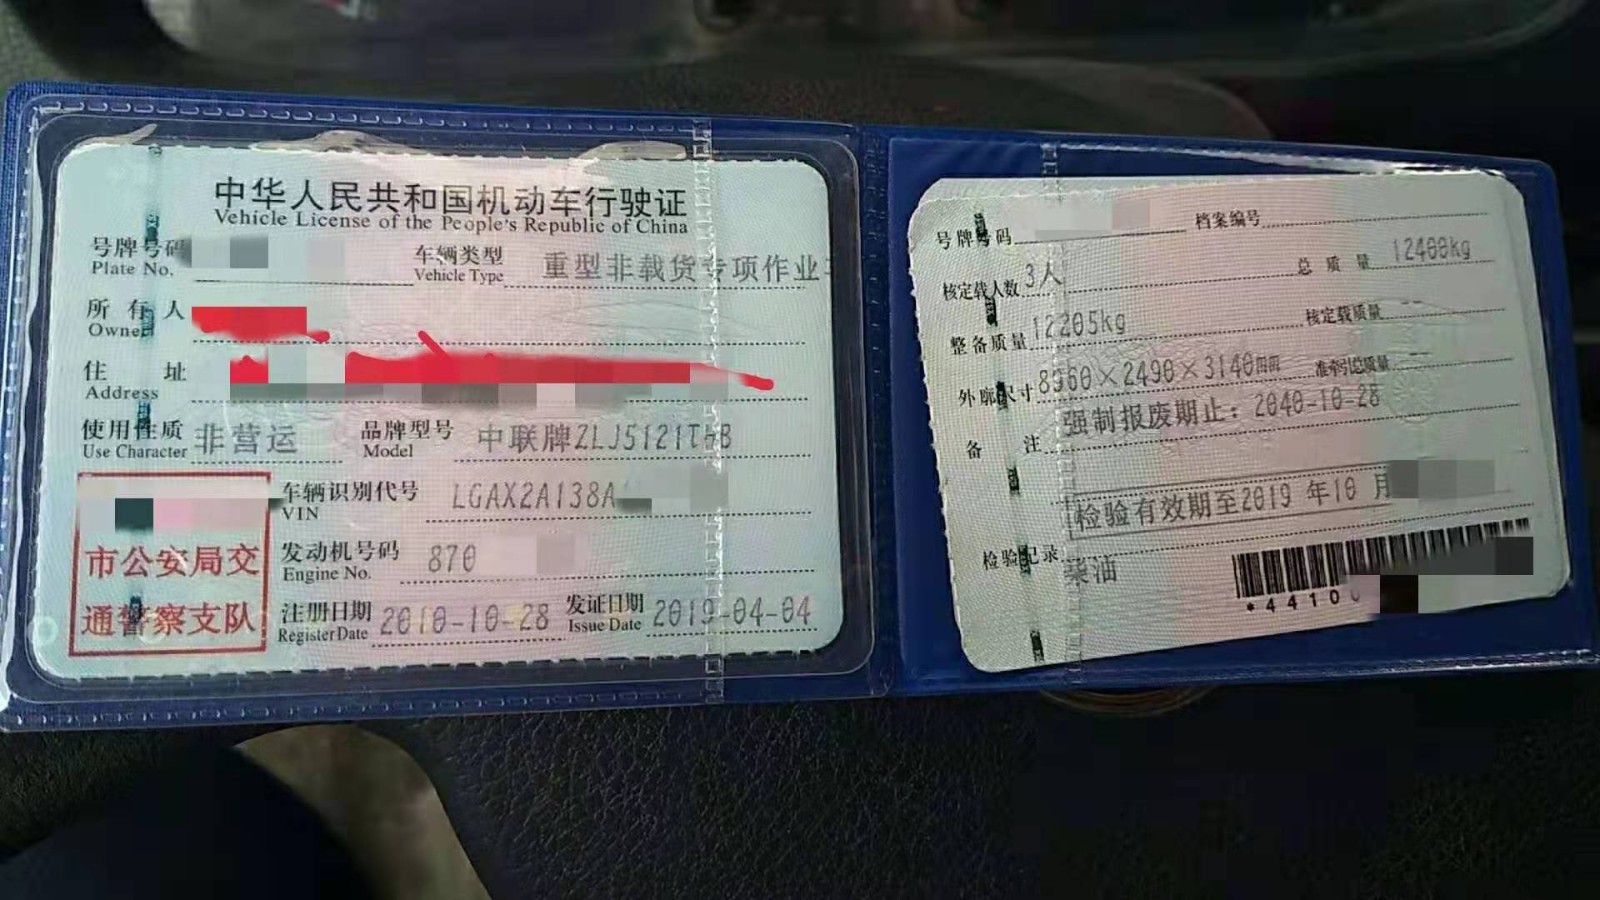 中华人民共和国机动车行驶证
Vehicle License of the People's Republic of China
号牌号码
Plate No.
车辆类型 重型非载货专项作业
Vehicle Type
所有人
Owner
住址
Address
使用性质 非营运
Use Character
品牌型号 中联牌ZLJ5121THB
Model
车辆识别代号 LGAX2A138A
VIN
发动机号码 870
Engine No.
市公安局交
通警察支队
注册日期 2010-10-28
Register Date
发证日期 2019-04-04
Issue Date
号牌号码 档案编号
核定载人数 3人 总质量 12400kg
整备质量 12205kg 核定载质量 --
外廓尺寸 8960×2490×3140mm 准牵引总质量 --
备注 强制报废期止：2040-10-28
检验有效期至2019年10月
检验记录 柴油
*44100